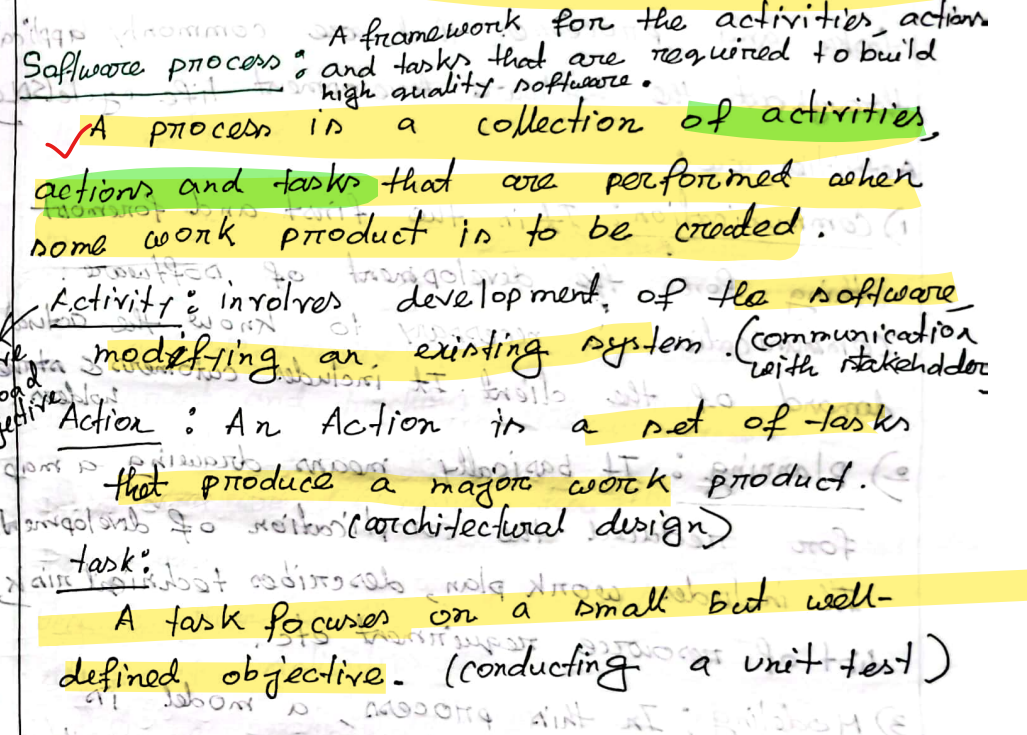 A framework for the activities, actions
Software process : and tasks that are required to build
high quality software.
A process is a collection of activities,
actions and tasks that are performed when
some work product is to be created.
Activity : involves development, of the software,
modifying an existing system. (communication
with stakeholder
Action : An Action is a set of tasks
that produce a major work product.
(architectural design)
task:
A task focuses on a small but well-
defined objective. (conducting a unit test)